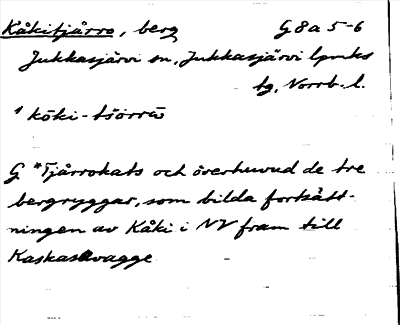 Kåkitjårro, berg G 8 a 5-6
Jukkasjärvi sn, Jukkasjärvi lpmks
tg, Norrb. l.
¹ kōki-tśorrō
G *Tjårrokats och överhuvud de tre
bergryggar, som bilda fortsätt-
ningen av Kåki i NV fram till
Kaskasavagge